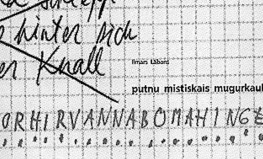 hinter sich
Knall
Ilmars Lābans
putnu mistiskais mugurkaul
ORHIRVANNABOMAHINGE